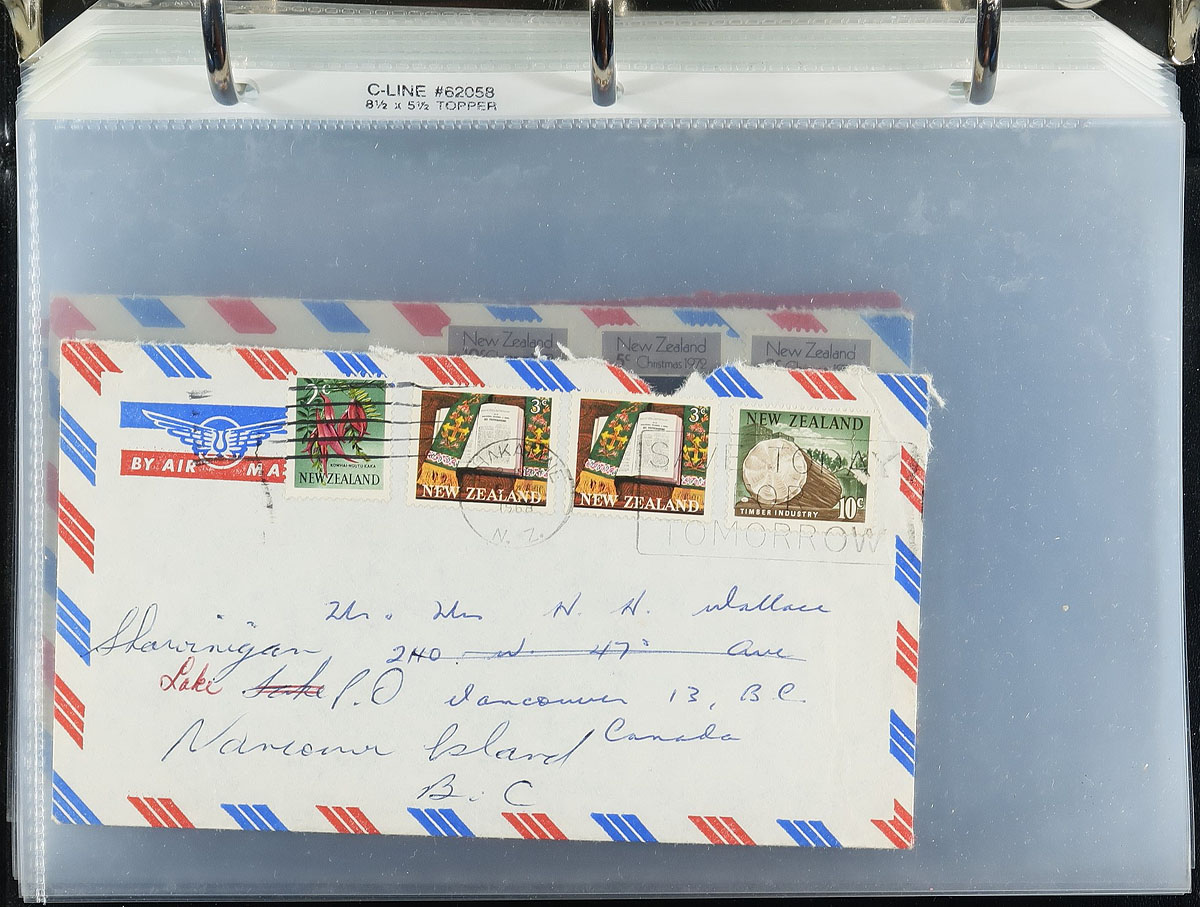 C-LINE #62058
8½ x 5½ TOPPER
New Zealand
New Zealand
5c Christmas 1972
New Zealand
BY AIR MA
2c
KOWHAI-NGUTU-KAKA
NEW ZEALAND
3c
NEW ZEALAND
3c
NEW ZEALAND
NEW ZEALAND
TIMBER INDUSTRY 10c
N. Z.
TOMORROW
H. H. Wallace
Shawinigan 240 W. 47 Ave
Lake Lake P.O Vancouver 13, B.C.
Canada
Vancouver Island
B.C